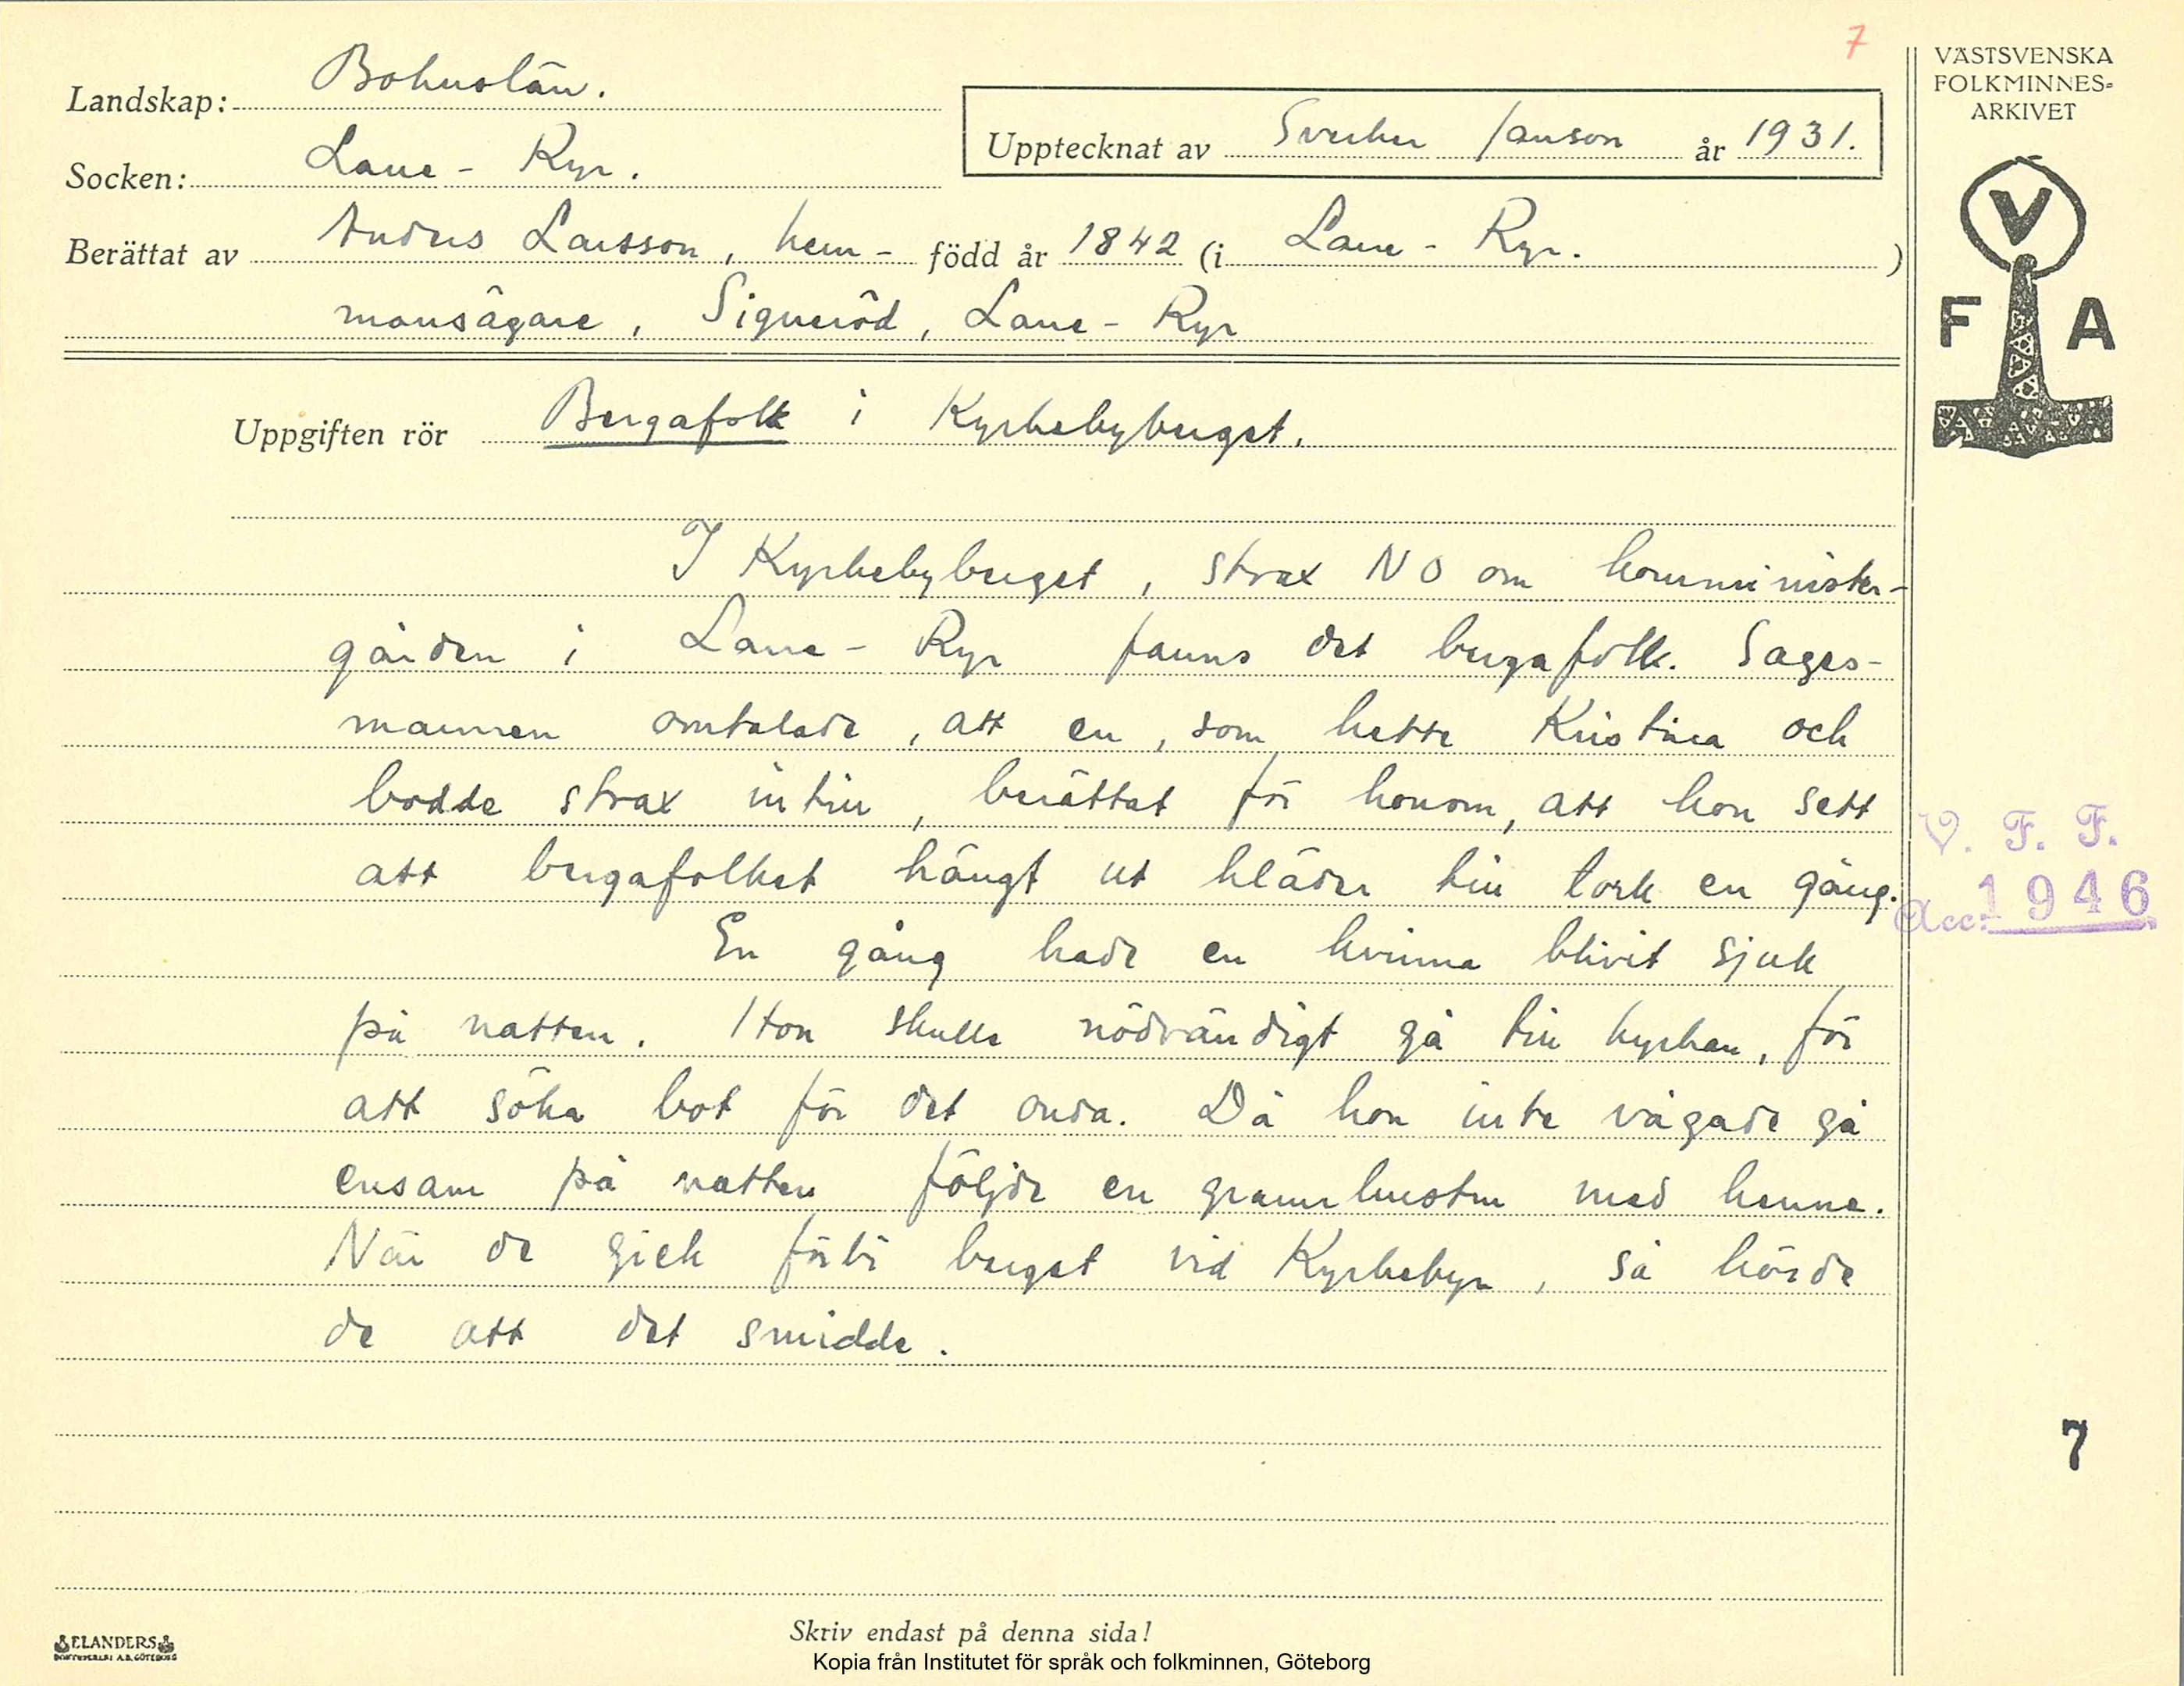 7
Landskap: Bohuslän.
Socken: Lane-Ryr.
Upptecknat av Sverker Janson år 1931.
Berättat av Anders Larsson, hem- född år 1842 (i Lane-Ryr. )
mansägare, Signeröd, Lane-Ryr
Uppgiften rör Bergafolk i Kyrkebyberget.
I Kyrkebyberget, strax NO om komminister-
gården i Lane-Ryr fanns det bergafolk. Sages-
mannen omtalade, att en, som hette Kristina och
bodde strax intill, berättat för honom, att hon sett
att bergafolket hängt ut kläder till tork en gång.
En gång hade en kvinna blivit sjuk
på natten. Hon skulle nödvändigt gå till kyrkan, för
att söka bot för det onda. Då hon inte vågade gå
ensam på natten följde en grannhustru med henne.
När de gick förbi berget vid Kyrkebyn, så hörde
de att det smidde.
VÄSTSVENSKA
FOLKMINNES-
ARKIVET
V
F A
V. F. F.
Acc. 1946
7
ELANDERS
BOKTRYCKERI A.B. GÖTEBORG
Skriv endast på denna sida!
Kopia från Institutet för språk och folkminnen, Göteborg